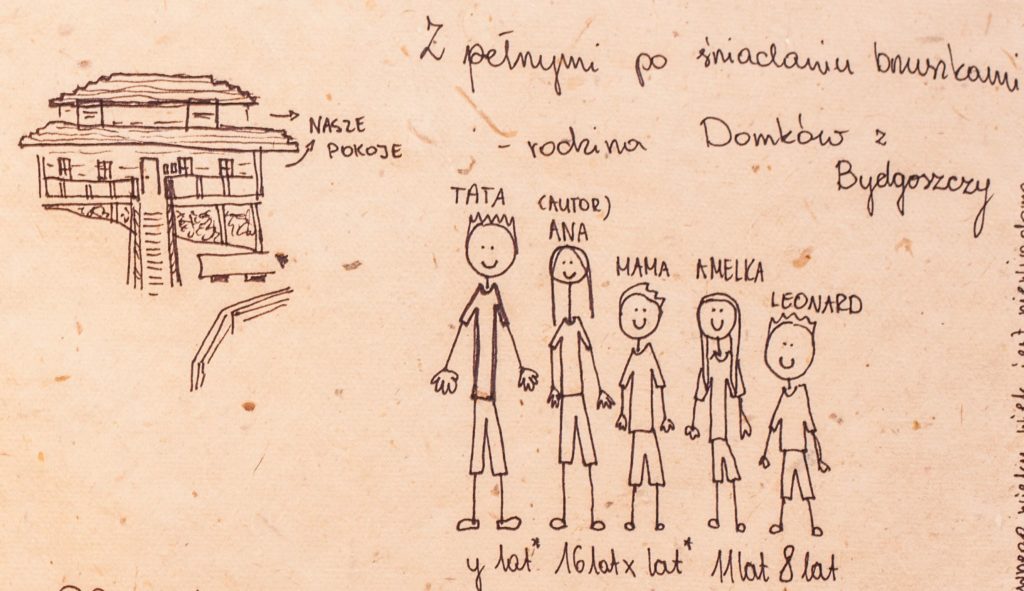 Z pełnymi po śniadaniu bruszkami
- rodzina Domków z
Bydgoszczy
NASZE
POKOJE
TATA
(AUTOR)
ANA
MAMA
AMELKA
LEONARD
y lat* 16 lat x lat* 11 lat 8 lat
wieku wiek jest niewiadomą